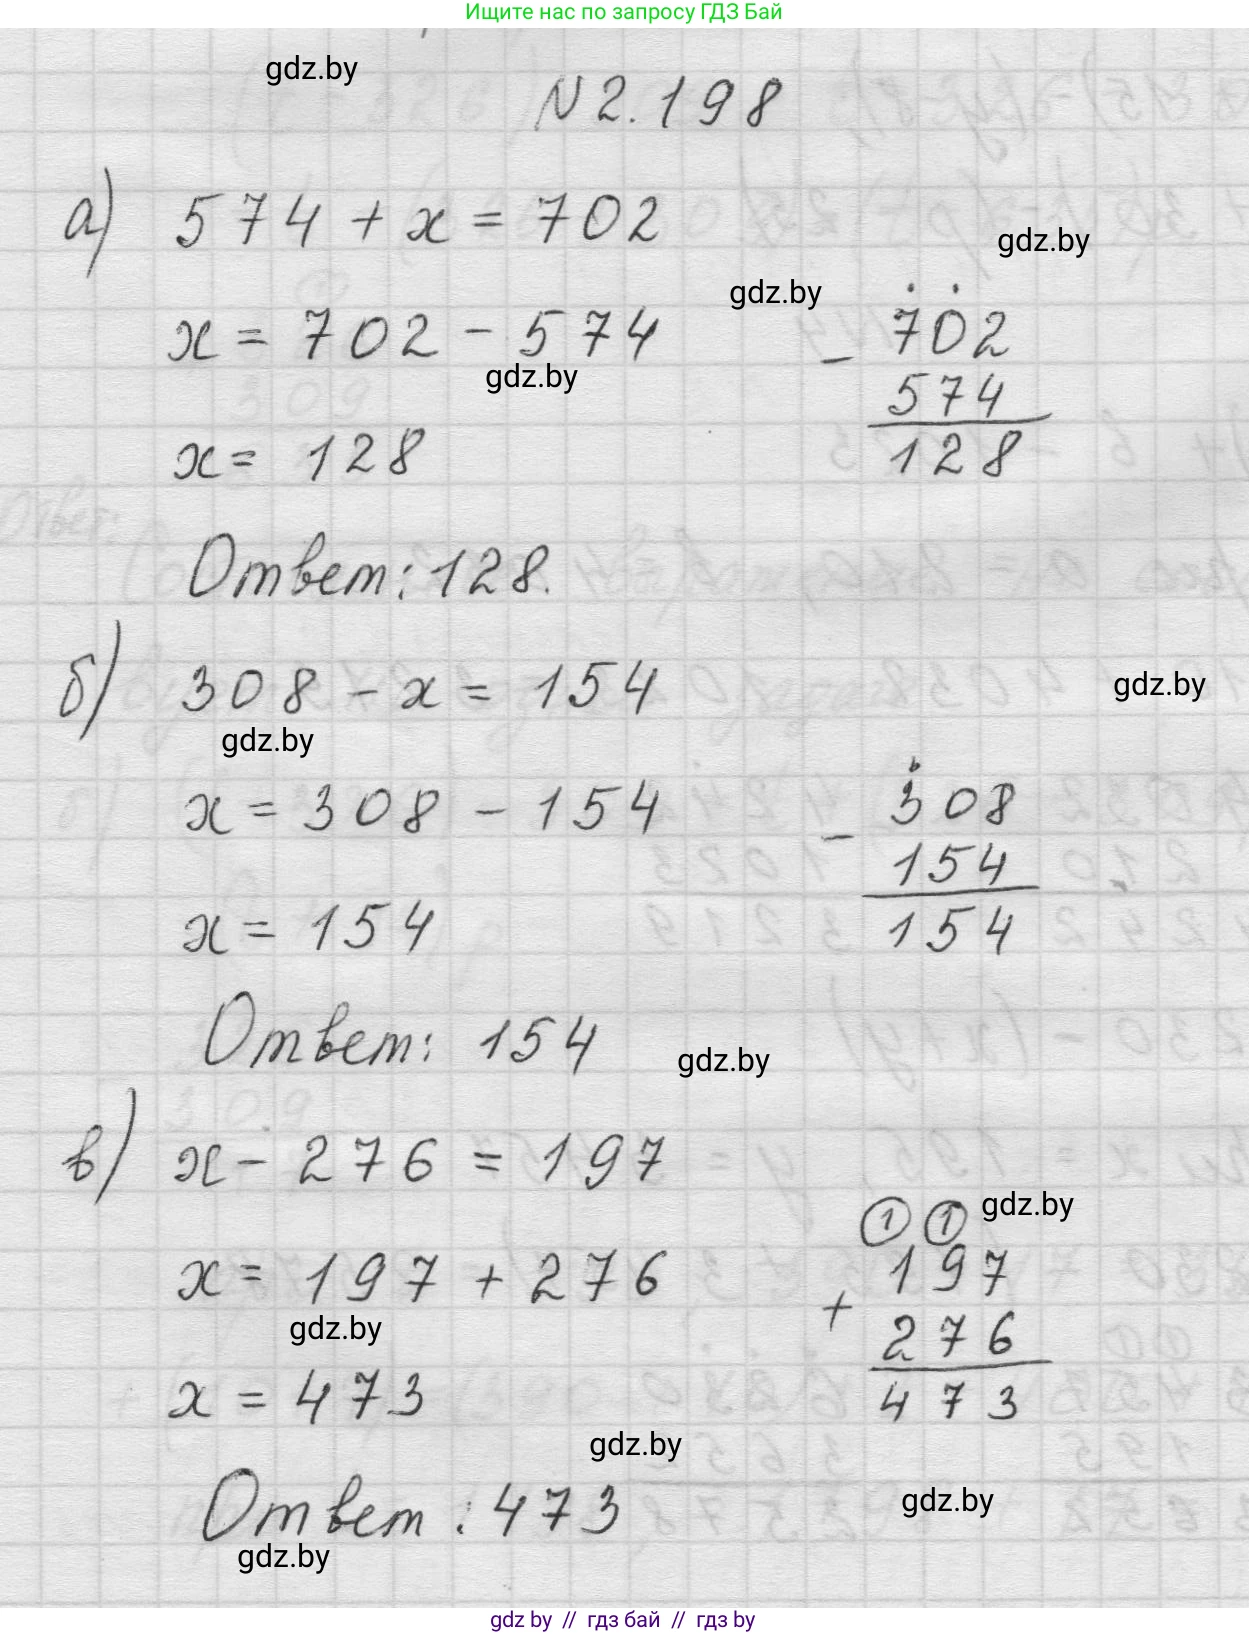 Ищите нас по запросу ГДЗ Бай
gdz.by
N 2.198
а) 574 + x = 702
gdz.by
gdz.by
x = 702 - 574
gdz.by
x = 128
702
-
574
128
Ответ: 128.
б) 308 - x = 154
gdz.by
gdz.by
x = 308 - 154
x = 154
308
-
154
154
Ответ: 154
gdz.by
в) x - 276 = 197
gdz.by
x = 197 + 276
gdz.by
x = 473
1 1
197
+
276
473
gdz.by
Ответ: 473
gdz.by
gdz.by
gdz by // гдз бай // гдз by